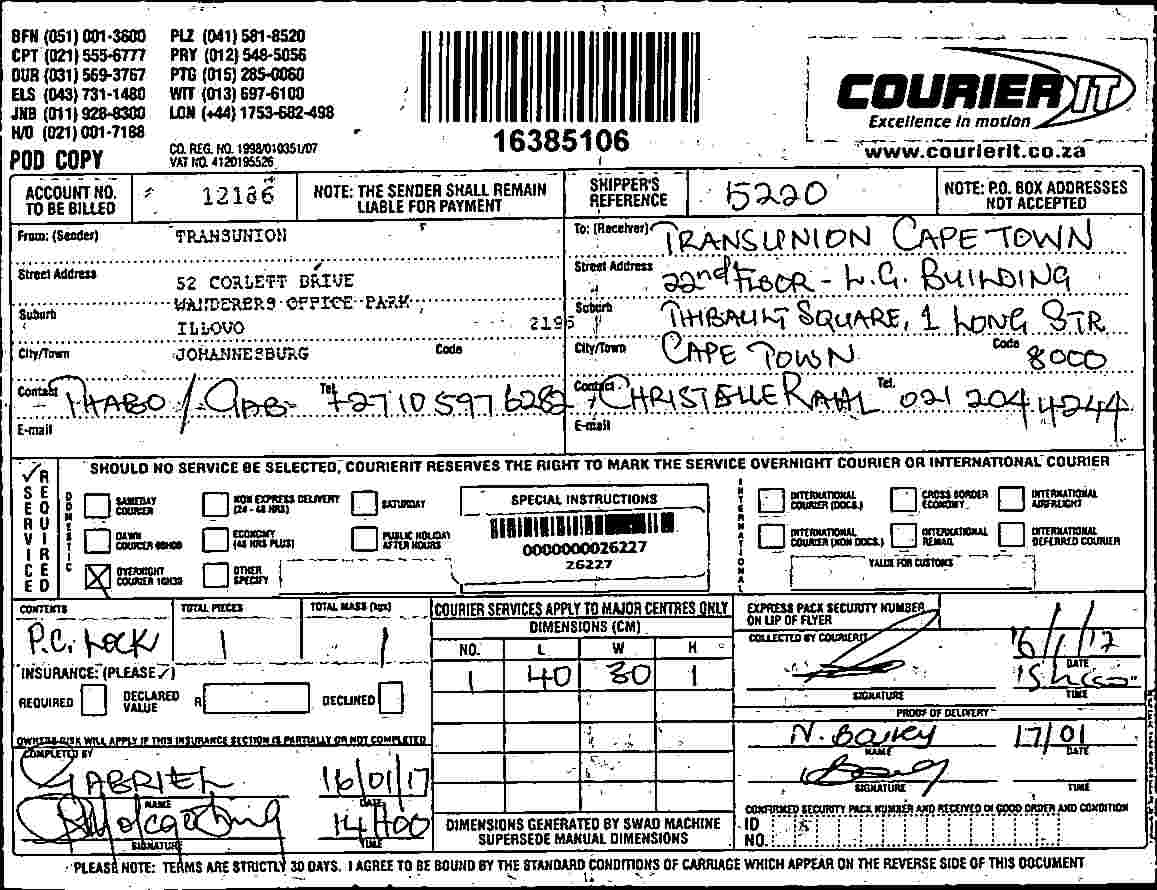 BFN (051) 001-3600 PLZ (041) 581-8520
CPT (021) 555-6777 PRY (012) 548-5056
DUR (031) 569-3767 PTG (015) 285-0060
ELS (043) 731-1480 WIT (013) 697-6100
JNB (011) 928-8300 LON (+44) 1753-682-498
H/O (021) 001-7188
POD COPY
CO. REG. NO. 1998/010351/07
VAT NO. 4120195526
16385106
COURIER IT
Excellence in motion
www.courierit.co.za
ACCOUNT NO. TO BE BILLED 12186
NOTE: THE SENDER SHALL REMAIN LIABLE FOR PAYMENT
SHIPPER'S REFERENCE 5220
NOTE: P.O. BOX ADDRESSES NOT ACCEPTED
From: (Sender) TRANSUNION
Street Address 52 CORLETT DRIVE
WANDERERS OFFICE PARK
Suburb ILLOVO 2196
City/Town JOHANNESBURG Code
Contact THABO / GAB Tel. +27 10 597 6282
E-mail
To: (Receiver) TRANSUNION CAPE TOWN
Street Address 22nd FLOOR - L.G. BUILDING
Suburb THIBAULT SQUARE, 1 LONG STR
City/Town CAPE TOWN Code 8000
Contact CHRISTELLE Tel. 021 204 4244
E-mail
SERVICE REQUIRED
SHOULD NO SERVICE BE SELECTED, COURIERIT RESERVES THE RIGHT TO MARK THE SERVICE OVERNIGHT COURIER OR INTERNATIONAL COURIER
DOMESTIC
SAMEDAY COURIER
NON EXPRESS DELIVERY (24 - 48 HRS)
SATURDAY
DAWN COURIER 09H00
ECONOMY (48 HRS PLUS)
PUBLIC HOLIDAY AFTER HOURS
OVERNIGHT COURIER 10H30
OTHER SPECIFY
SPECIAL INSTRUCTIONS
0000000026227
26227
INTERNATIONAL
INTERNATIONAL COURIER (DOCS.)
CROSS BORDER ECONOMY
INTERNATIONAL AIRFREIGHT
INTERNATIONAL COURIER (NON DOCS.)
INTERNATIONAL REMAIL
INTERNATIONAL DEFERRED COURIER
VALUE FOR CUSTOMS
CONTENTS P.C. Lock
TOTAL PIECES 1
TOTAL MASS (kgs) 1
INSURANCE: (PLEASE ✓)
REQUIRED
DECLARED VALUE R
DECLINED
OWNERS RISK WILL APPLY IF THIS INSURANCE SECTION IS PARTIALLY OR NOT COMPLETED
COMPLETED BY
GABRIEL 16/01/17
NAME DATE
14H00
SIGNATURE TIME
COURIER SERVICES APPLY TO MAJOR CENTRES ONLY
DIMENSIONS (CM)
NO. L W H
1 40 30 1
DIMENSIONS GENERATED BY SWAD MACHINE SUPERSEDE MANUAL DIMENSIONS
EXPRESS PACK SECURITY NUMBER ON LIP OF FLYER
COLLECTED BY COURIERIT
16/1/17
DATE
SIGNATURE TIME
PROOF OF DELIVERY
17/01
NAME DATE
SIGNATURE TIME
CONFIRMED SECURITY PACK NUMBER AND RECEIVED IN GOOD ORDER AND CONDITION
ID NO.
PLEASE NOTE: TERMS ARE STRICTLY 30 DAYS. I AGREE TO BE BOUND BY THE STANDARD CONDITIONS OF CARRIAGE WHICH APPEAR ON THE REVERSE SIDE OF THIS DOCUMENT